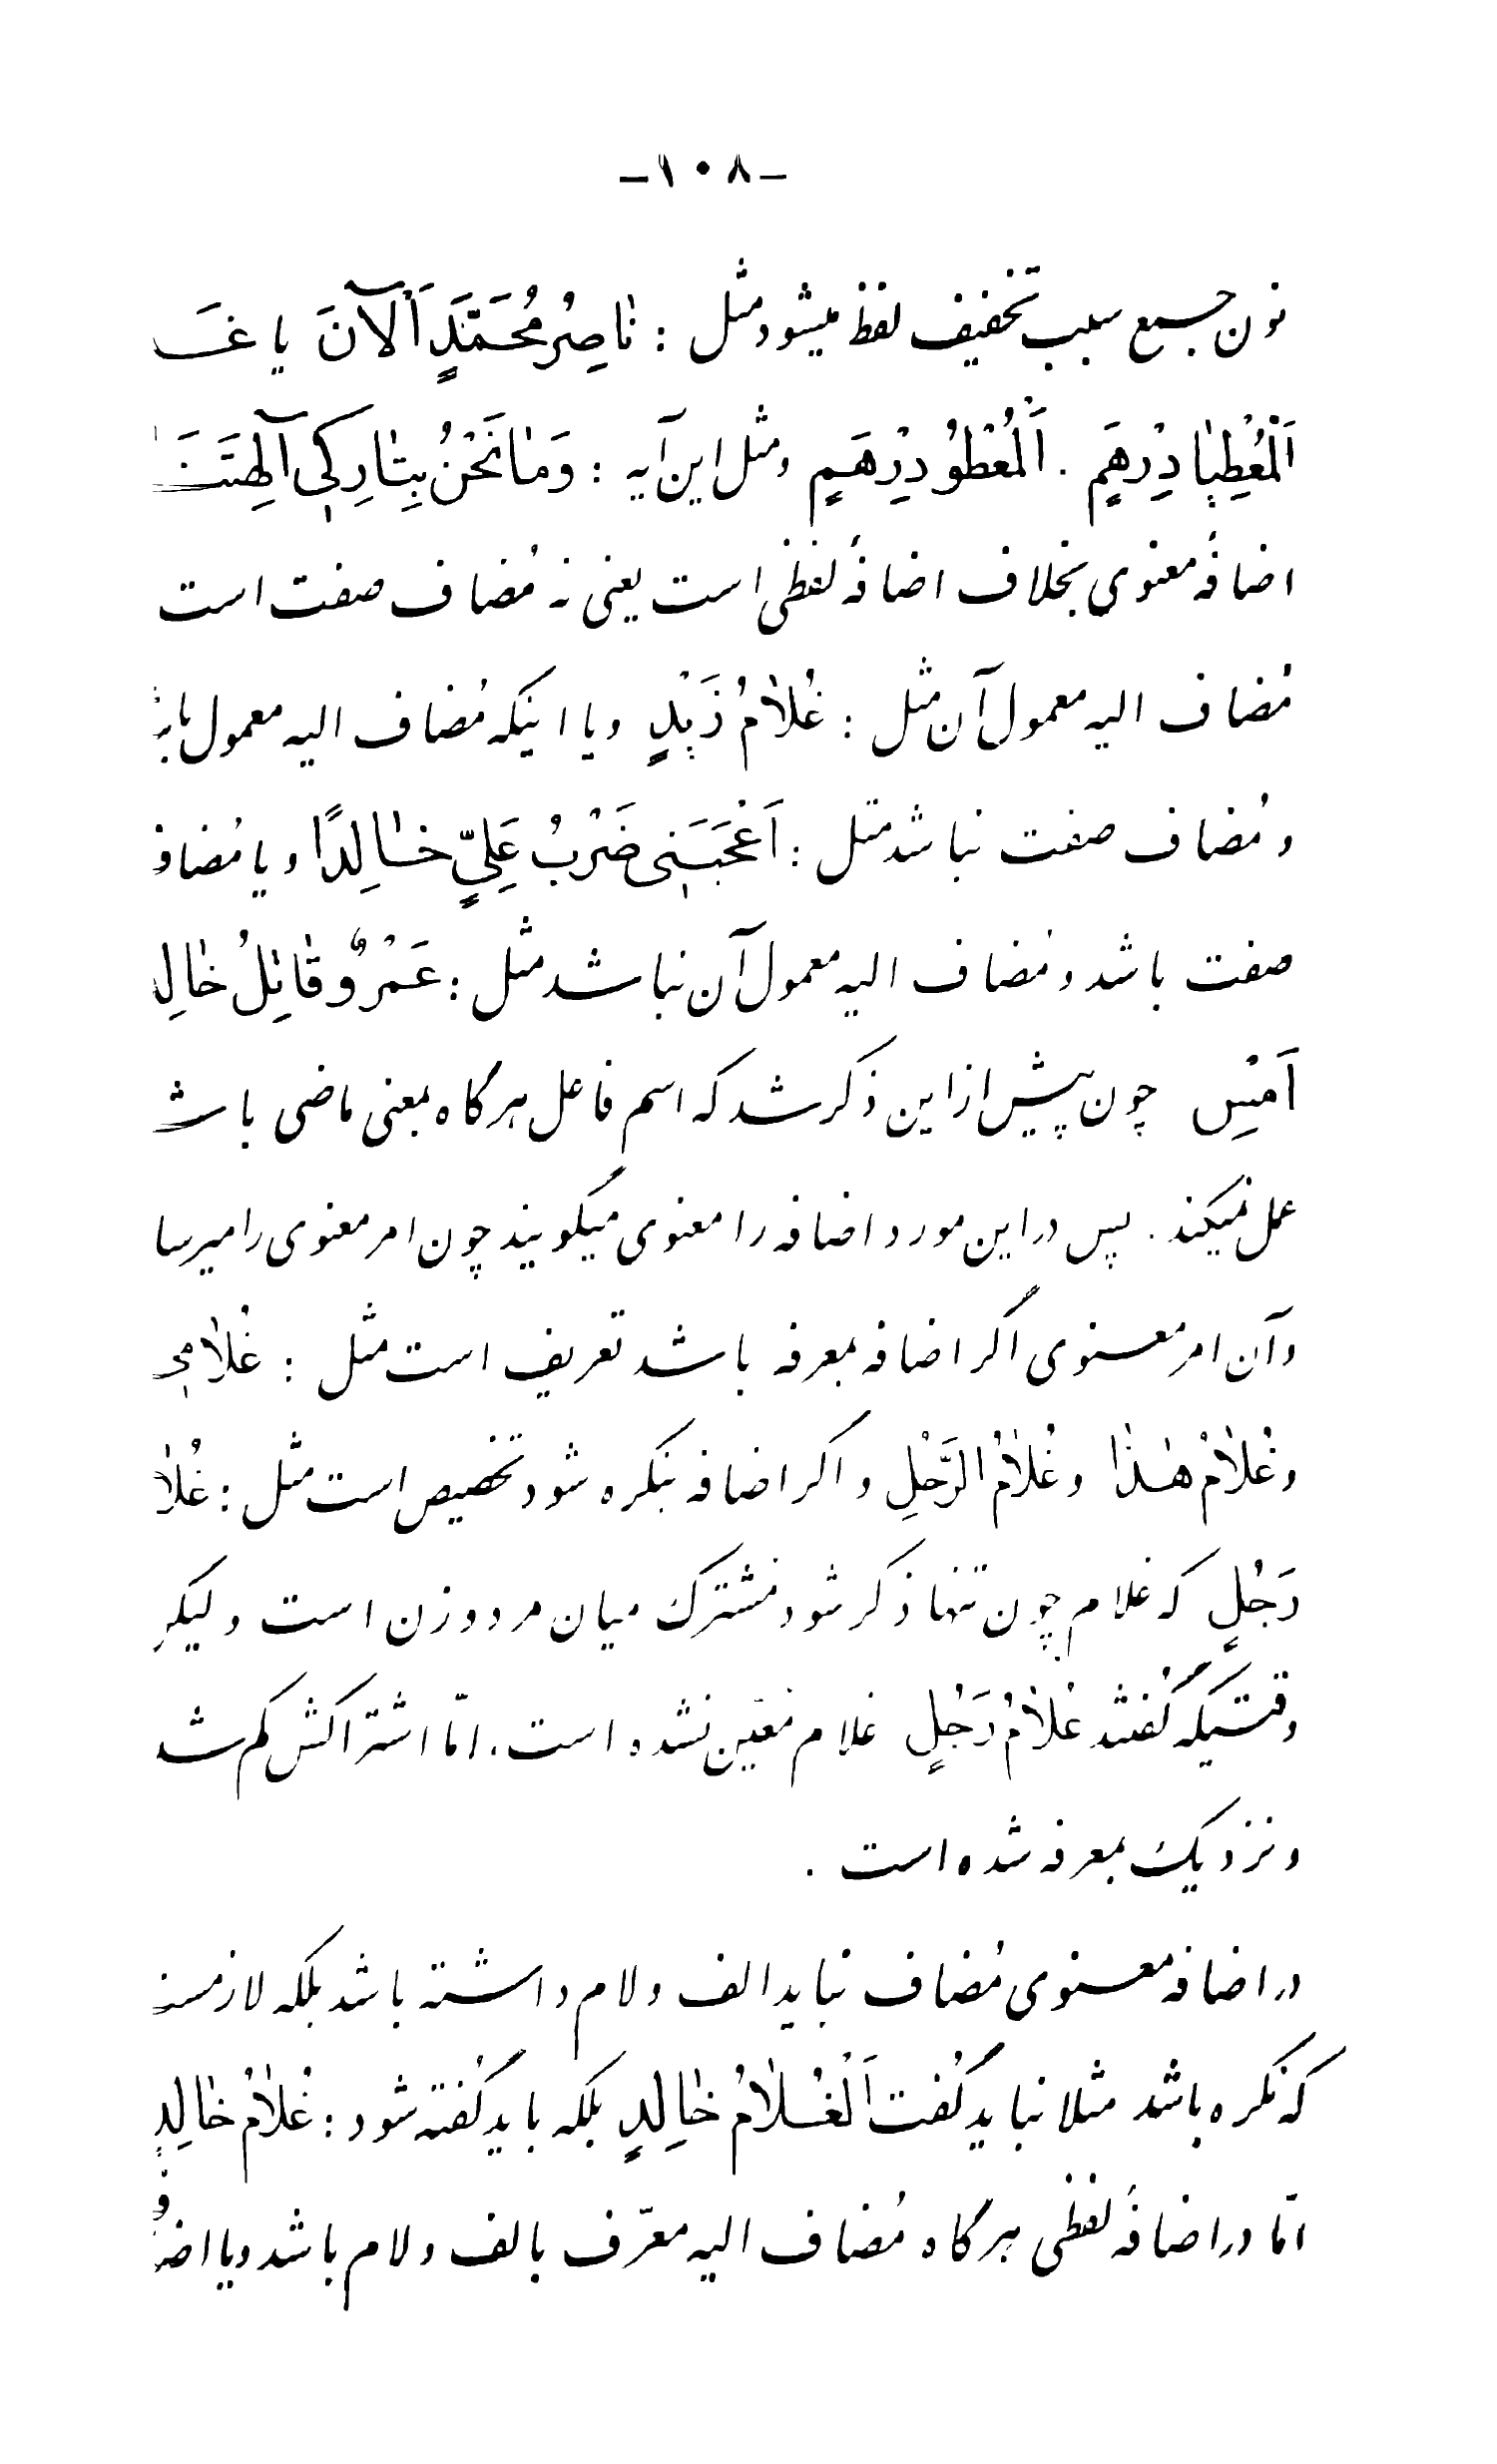 -١٠٨-
نون جمع سبب تخفیف لفظ میشود مثل : نٰاصِرُ مُحَمَّدٍ اَلْآنَ یا غَـ
اَلْمُعْطِیٰا دِرْهَمٍ . اَلْمُعْطُو دِرْهَمٍ ومثل این آیه : وَمٰا نَحْنُ بِتٰارِکی آلِهَتِنَا
اضافهٔ معنوی بخلاف اضافهٔ لفظی است یعنی نه مُضاف صفت است
مُضاف الیه معمول آن مثل : غُلاٰمُ زَیْدٍ ویا اینکه مُضاف الیه معمول باشد
ومُضاف صفت نباشد مثل : اَعْجَبَنی ضَرْبُ عَلِیٍّ خٰالِدًا ویا مُضاف
صفت باشد ومُضاف الیه معمول آن نباشد مثل : عَمْرٌو قٰاتِلُ خٰالِ
اَمْسِ چون پیش از این ذکر شد که اسم فاعل هرگاه بمعنی ماضی باشد
عمل نمیکند . پس در این مورد اضافه را معنوی میگویند چون امر معنوی را میرسا
وآن امر معنوی اگر اضافه بمعرفه باشد تعریف است مثل : غُلاٰمی
وغُلاٰمُ هٰذٰا وغُلاٰمُ الرَّجُلِ واگر اضافه بنکره شود تخصیص است مثل : غُلاٰ
رَجُلٍ که غلام چون تنها ذکر شود مشترک میان مرد وزن است ولیکن
وقتیکه گفتند غُلاٰمُ رَجُلٍ غلام معیّن نشده است، امّا اشتراکش کم شد
ونزدیک بمعرفه شده است .
در اضافه معنوی مُضاف نباید الف ولام داشته باشد بلکه لازمست
که نکره باشد مثلا نباید گفت اَلْغُلاٰمُ خٰالِدٍ بلکه باید گفته شود : غُلاٰمُ خٰالِدٍ
امّا در اضافهٔ لفظی هرگاه مُضاف الیه معرّف بالف ولام باشد ویا اضا